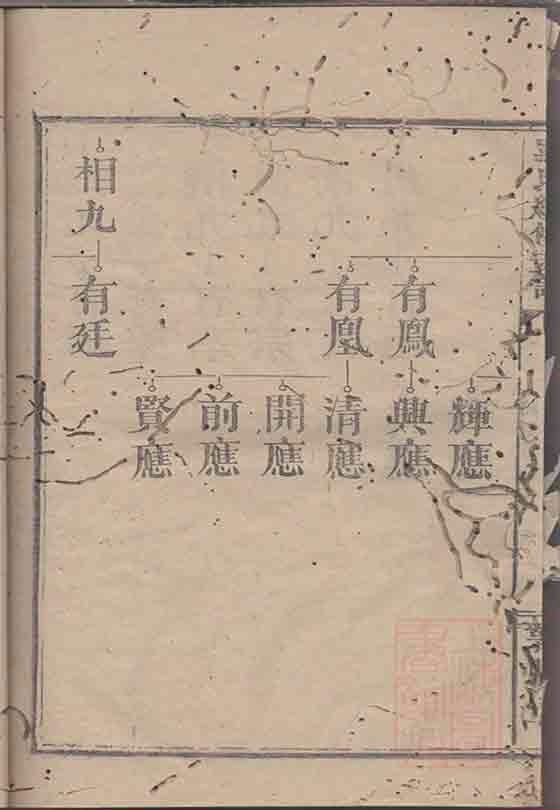 輝應
有鳳
興應
有凰
清應
開應
前應
賢應
相九
有廷